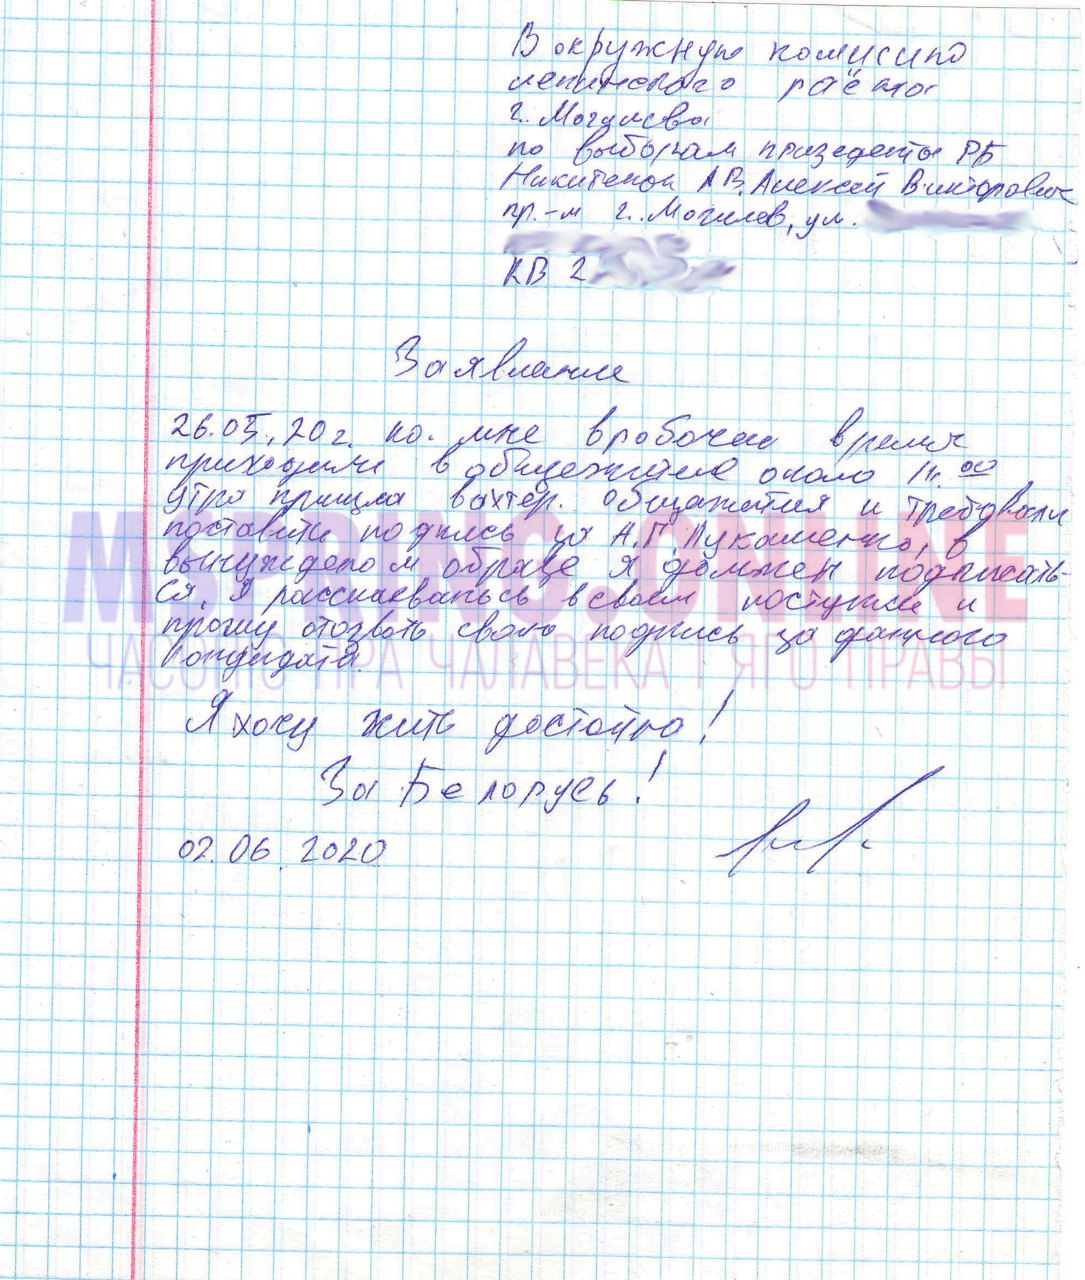 В окружную комисию
ленинского раёна
г. Могилёва
по выборам президента РБ
Никитенок АВ. Алексей Викторович
пр.-м г. Могилев, ул.
КВ 2
Заявление
26.05.20г. ко. мне в робочее время
приходили в общежитие около 11.00
утра пришла вахтёр. общажития и требовали
поставить подпись за А.Г. Лукашенко, в
вынужденом образе я должен подписать-
ся, я расскаеваюсь в своем поступке и
прошу отозвать свою подпись за данного
кандидата.
Я хочу жить достойно!
За Белорусь!
02.06.2020
MSPRING.ONLINE
ЧАСОПІС ПРА ЧАЛАВЕКА І ЯГО ПРАВЫ